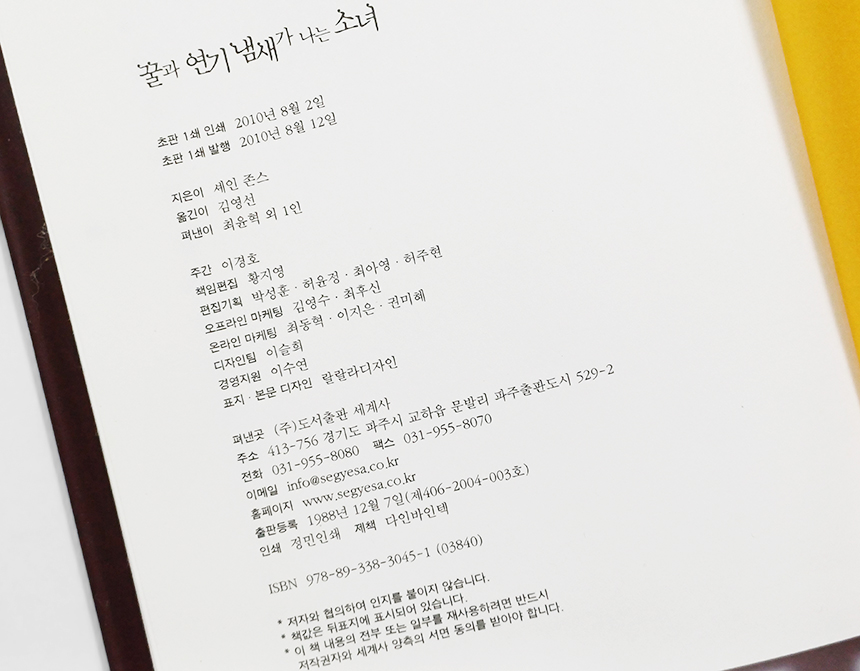 꿀과 연기 냄새가 나는 소녀
초판 1쇄 인쇄 2010년 8월 2일
초판 1쇄 발행 2010년 8월 12일
지은이 세인 존스
옮긴이 김영선
펴낸이 최윤혁 외 1인
주간 이경호
책임편집 황지영
편집기획 박성훈 · 허윤정 · 최아영 · 허주현
오프라인 마케팅 김영수 · 최후신
온라인 마케팅 최동혁 · 이지은 · 권미혜
디자인팀 이슬희
경영지원 이수연
표지 · 본문 디자인 랄랄라디자인
펴낸곳 (주)도서출판 세계사
주소 413-756 경기도 파주시 교하읍 문발리 파주출판도시 529-2
전화 031-955-8080 팩스 031-955-8070
이메일 info@segyesa.co.kr
홈페이지 www.segyesa.co.kr
출판등록 1988년 12월 7일(제406-2004-003호)
인쇄 정민인쇄 제책 다인바인텍
ISBN 978-89-338-3045-1 (03840)
* 저자와 협의하여 인지를 붙이지 않습니다.
* 책값은 뒤표지에 표시되어 있습니다.
* 이 책 내용의 전부 또는 일부를 재사용하려면 반드시
저작권자와 세계사 양측의 서면 동의를 받아야 합니다.